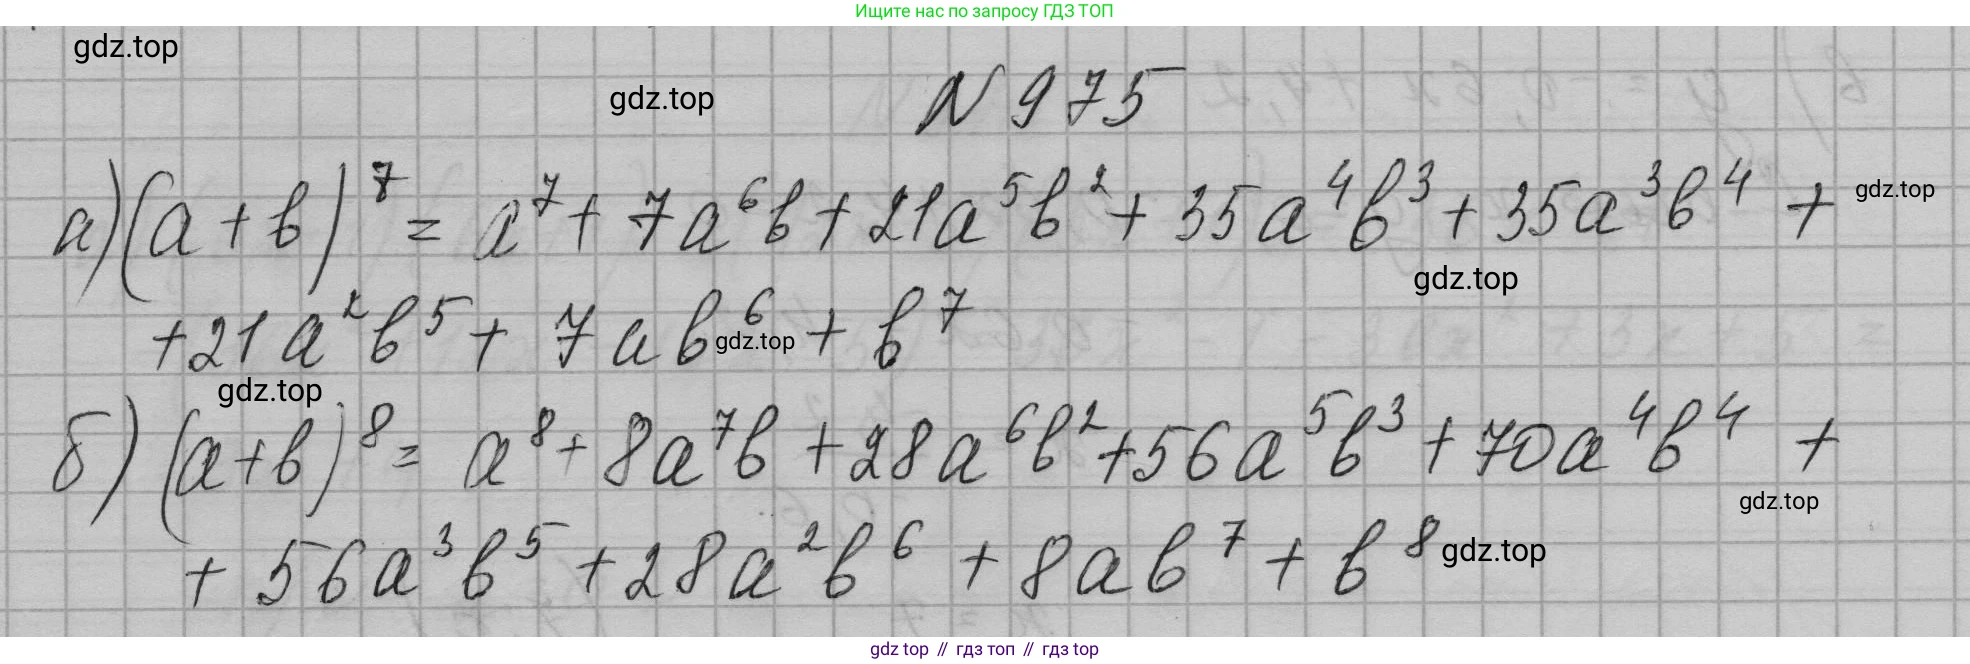 Ищите нас по запросу ГДЗ ТОП
gdz.top
gdz.top
N 975
а) (a + b)⁷ = a⁷ + 7a⁶b + 21a⁵b² + 35a⁴b³ + 35a³b⁴ +
gdz.top
gdz.top
+ 21a²b⁵ + 7ab⁶ + b⁷
gdz.top
gdz.top
б) (a + b)⁸ = a⁸ + 8a⁷b + 28a⁶b² + 56a⁵b³ + 70a⁴b⁴ +
gdz.top
+ 56a³b⁵ + 28a²b⁶ + 8ab⁷ + b⁸
gdz.top
gdz top // гдз топ // гдз top